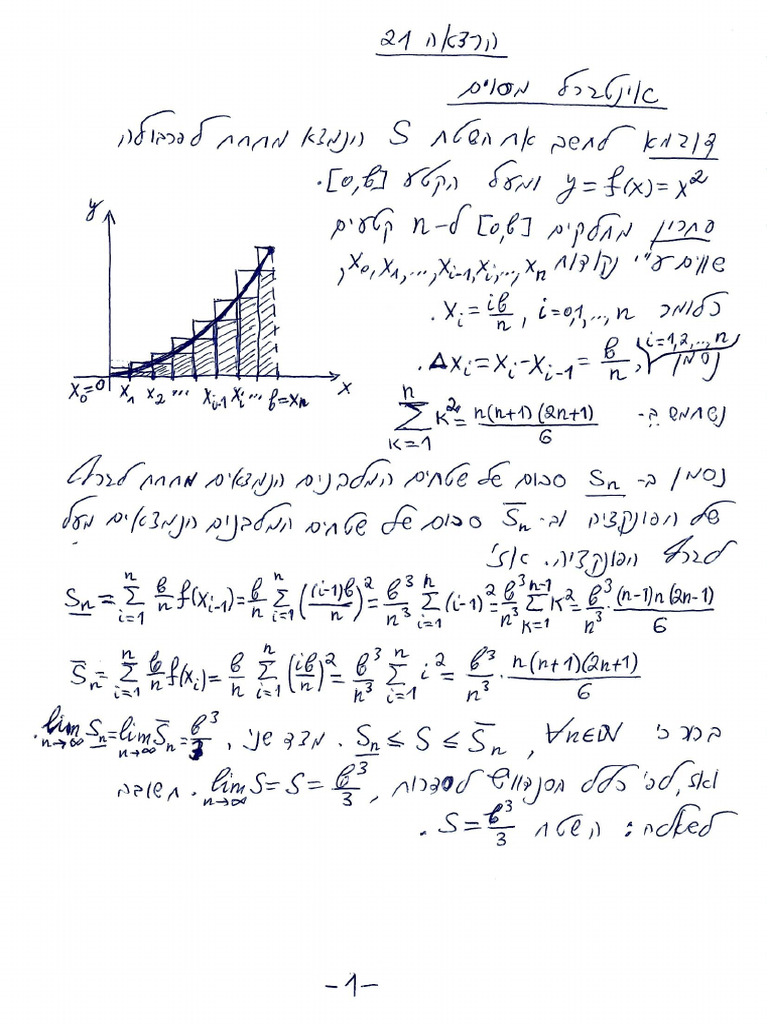 הרצאה 21
אינטגרל מסוים
דוגמא לחשב את השטח S הנמצא מתחת לפרבולה
y = f(x) = x² ומעל הקטע [0,b].
פתרון מחלקים [0,b] ל-n קטעים
שווים ע"י נקודות x₀, x₁, ..., xᵢ₋₁, xᵢ, ..., xₙ,
כלומר xᵢ = ib/n, i=0,1,...,n.
נסמן Δxᵢ = xᵢ - xᵢ₋₁ = b/n, i=1,2,...,n.
נשתמש ב- ∑_{k=1}^{n} k² = n(n+1)(2n+1)/6
y
x
x₀=0 x₁ x₂ ... xᵢ₋₁ xᵢ ... b=xₙ
נסמן ב- S̲ₙ סכום של שטחים המלבנים הנמצאים מתחת לגרף
של הפונקציה וב- S̅ₙ סכום של שטחים המלבנים הנמצאים מעל
לגרף הפונקציה. אזי
S̲ₙ = ∑_{i=1}^{n} b/n f(xᵢ₋₁) = b/n ∑_{i=1}^{n} ((i-1)b/n)² = b³/n³ ∑_{i=1}^{n} (i-1)² = b³/n³ ∑_{k=1}^{n-1} k² = b³/n³ · (n-1)n(2n-1)/6
S̅ₙ = ∑_{i=1}^{n} b/n f(xᵢ) = b/n ∑_{i=1}^{n} (ib/n)² = b³/n³ ∑_{i=1}^{n} i² = b³/n³ · n(n+1)(2n+1)/6
ברור כי ∀n∈ℕ, S̲ₙ ≤ S ≤ S̅ₙ. מצד שני, lim_{n→∞} S̲ₙ = lim_{n→∞} S̅ₙ = b³/3.
ואז, לפי כלל הסנדוויש לסדרות, lim_{n→∞} S = S = b³/3. תשובה
לשאלה: השטח S = b³/3.
-1-